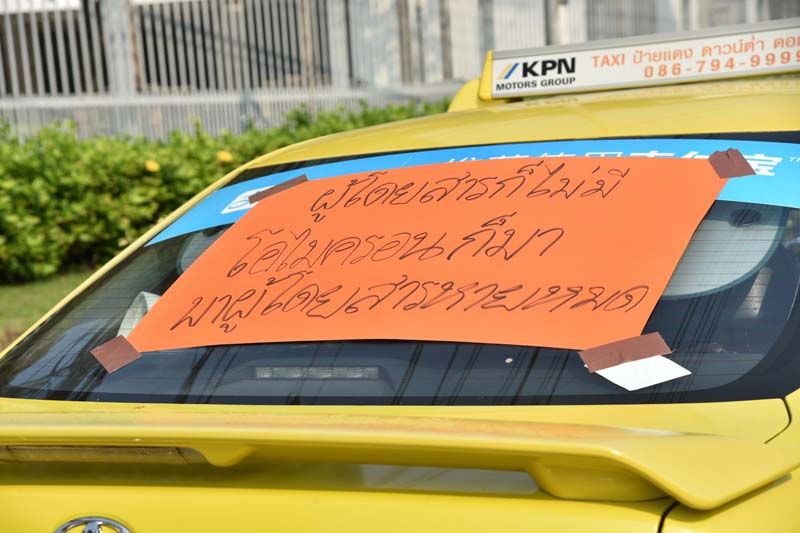 KPN
MOTORS GROUP
TAXI ป้ายแดง ดาวน์ต่ำ ดอก
086-794-9999
ผู้โดยสารก็ไม่มี
โอไมครอนก็มา
พาผู้โดยสารหายหมด